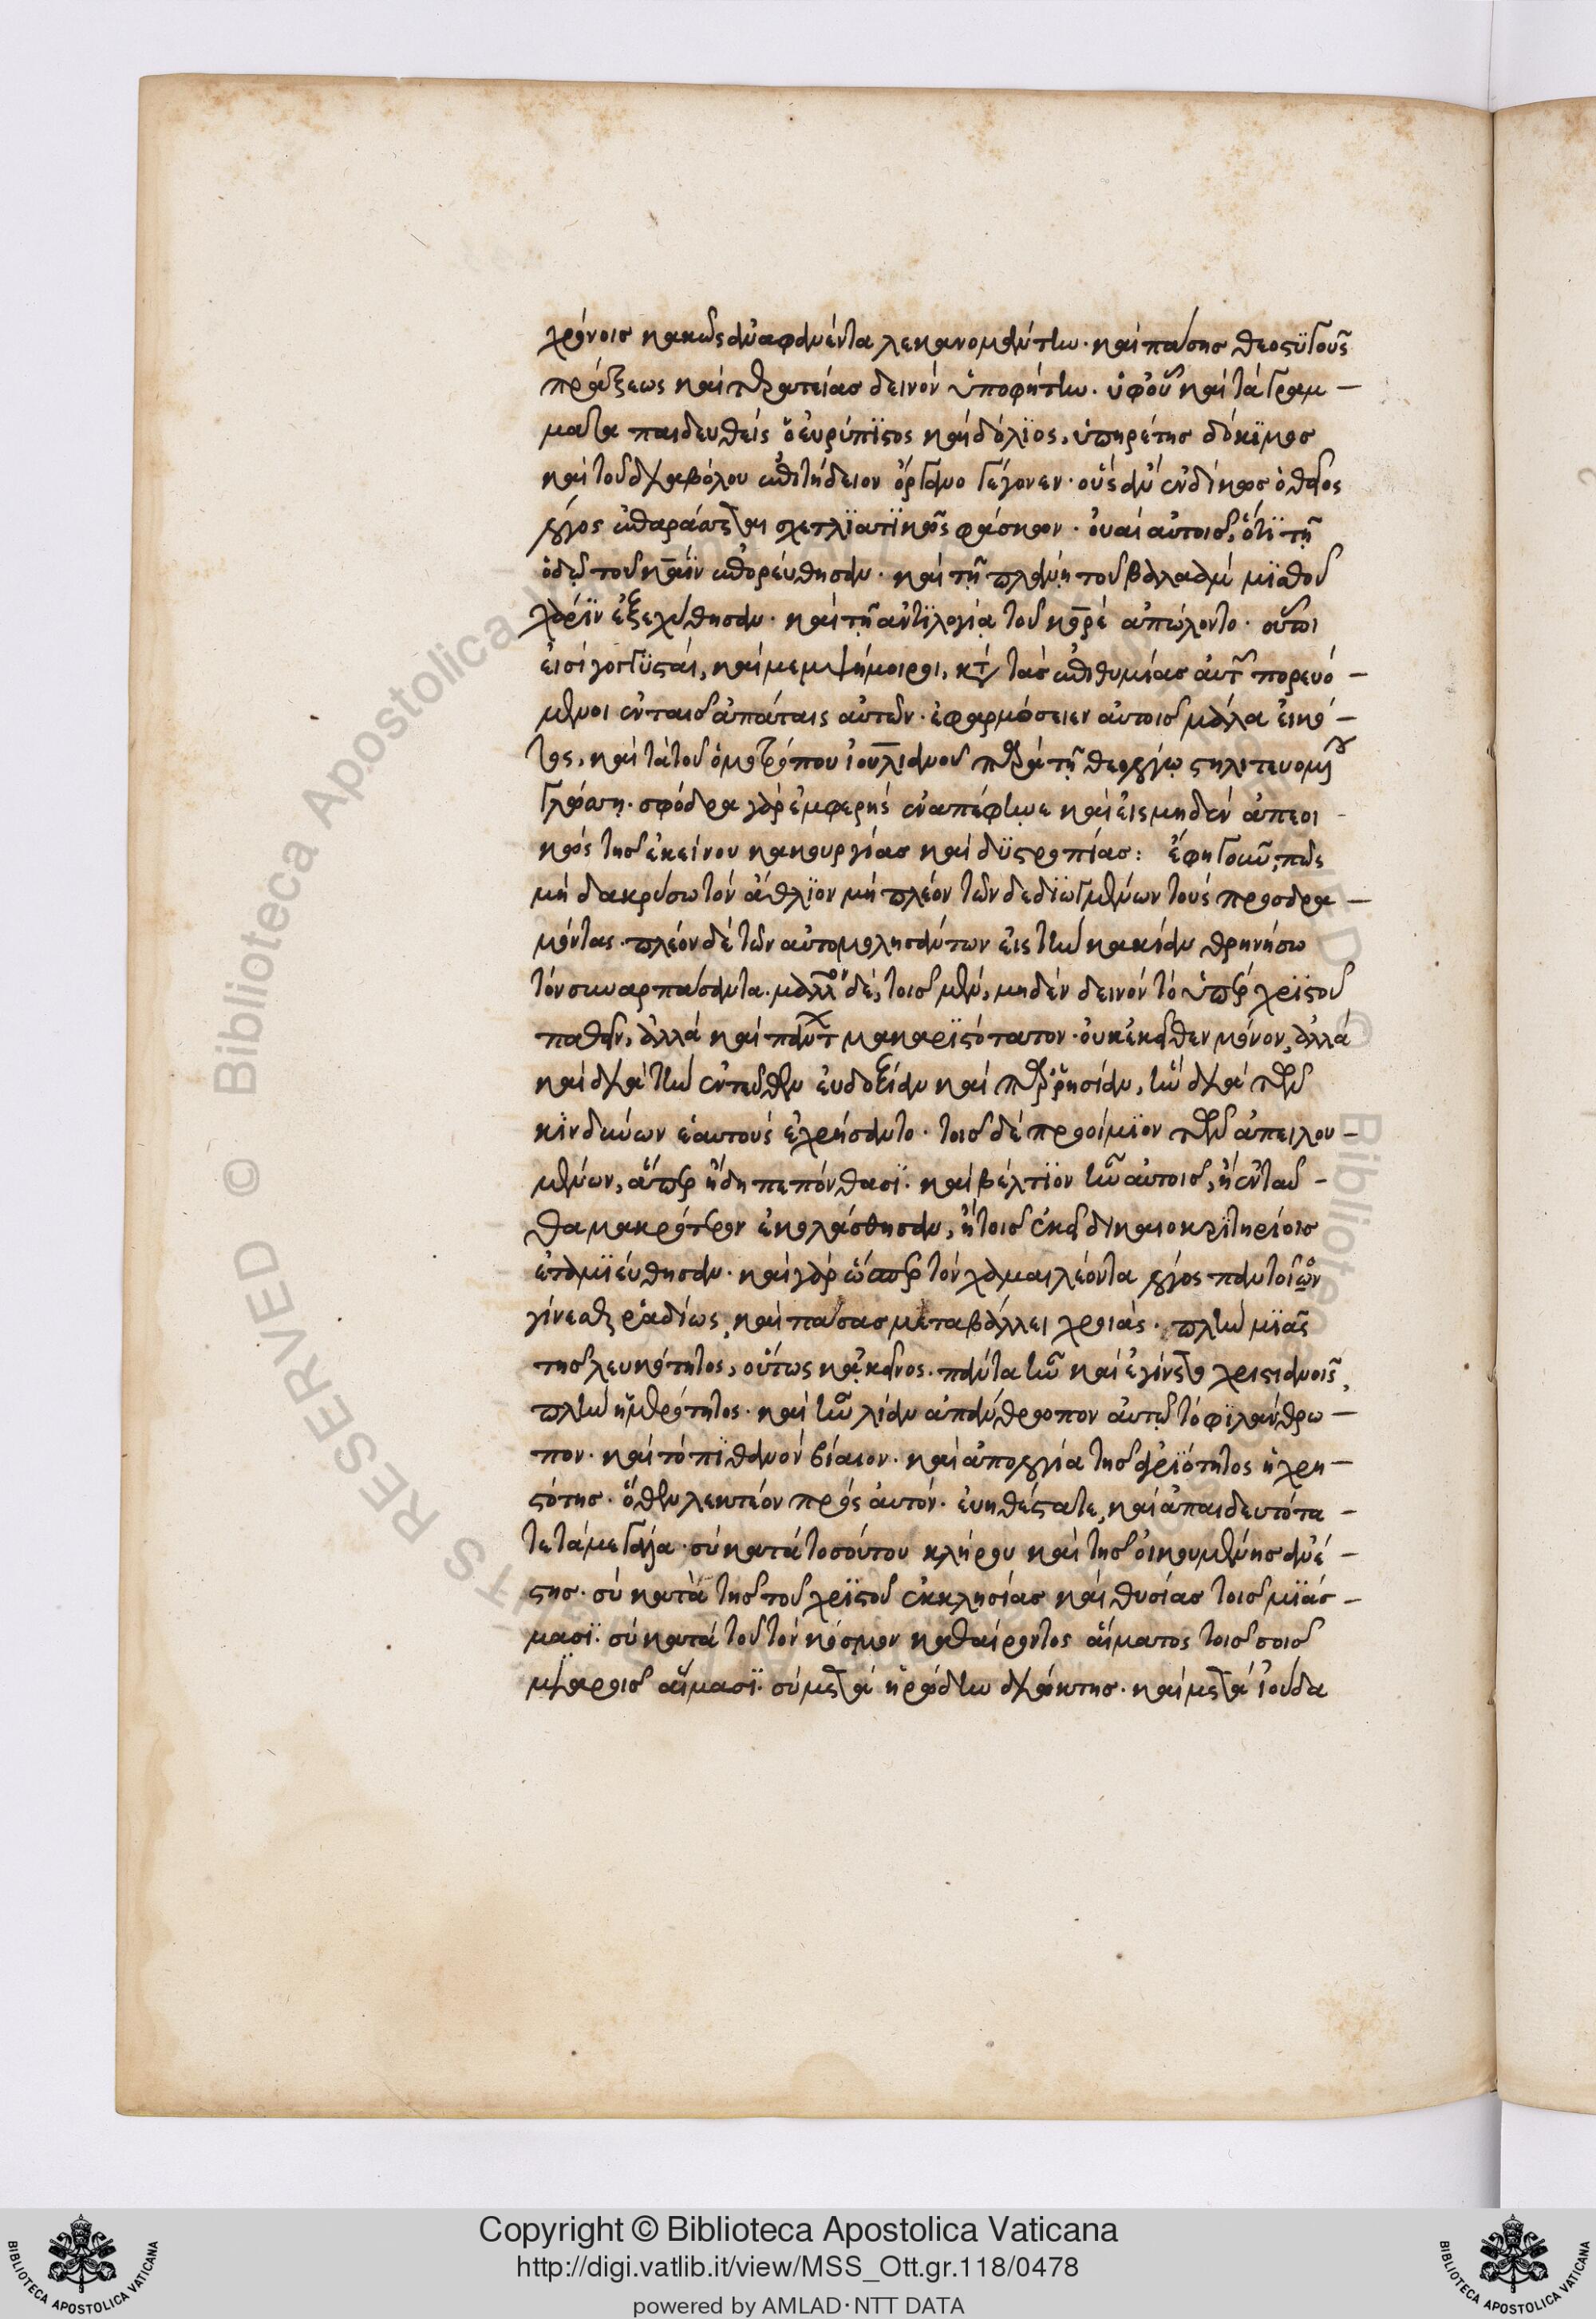 χρόνοις κακῶς ἀναφανέντα λεκανομάντην. καὶ πάσης θεοστυγοῦς
πράξεως καὶ τερατείας δεινὸν ὑποφήτην. ὑφ' οὗ καὶ τὰ γράμ-
ματα παιδευθεὶς ὁ εὐρύπιστος καὶ δόλιος, ὑπηρέτης δόκιμος
καὶ τοῦ διαβόλου ἐπιτήδειον ὄργανο γέγονεν. οὓς ἂν ἐνδίκως ὁ θεῖος
λόγος ἐπαράσεται σχετλιαστικῶς φάσκων. οὐαὶ αὐτοῖς, ὅτι τῇ
ὁδῷ τοῦ κάϊν ἐπορεύθησαν. καὶ τῇ πλάνῃ τοῦ βαλαὰμ μισθοῦ
χάριν ἐξεχύθησαν. καὶ τῇ ἀντιλογίᾳ τοῦ κορὲ ἀπώλοντο. οὗτοι
εἰσὶ γογγυσταὶ, καὶ μεμψήμοιροι, κατὰ τὰς ἐπιθυμίας αὐτῶν πορευό-
μενοι ἐν ταῖς ἀπάταις αὐτῶν. ἐφαρμόσειεν αὐτοῖς μάλα εἰκό-
τως, καὶ τὰ τοῦ ὁμοτρόπου ἰουλιανοῦ παρὰ τῇ θεολόγῳ στηλιτευομένου
γλώττῃ. σφόδρα γὰρ ἐμφερὴς ἐναπέφηνε καὶ εἰς μηδὲν ἀπεοι-
κὸς τῆς ἐκείνου κακουργίας καὶ δυστροπίας: ἔφη γοῦν, πῶς
μὴ δακρύσω τὸν ἄθλιον μὴ πλέον τῶν δεδιωγμένων τοὺς προσδρα-
μόντας. πλέον δὲ τῶν αὐτομολησάντων εἰς τὴν κακίαν θρηνήσω
τὸν συναρπάσαντα. μᾶλλον δὲ, τοῖς μὲν, μηδὲν δεινὸν τὸ ὑπὲρ χριστοῦ
παθεῖν, ἀλλὰ καὶ πάντων μακαριστότατον. οὐκ ἐκεῖθεν μόνον, ἀλλὰ
καὶ διὰ τὴν ἐντεῦθεν εὐδοξίαν καὶ παρρησίαν, ἣν διὰ τῶν
κινδύνων ἑαυτοὺς ἐχρήσαντο. τοῖς δὲ προοίμιον τῶν ἀπειλου-
μένων, ἅπερ ἤδη πεπόνθασι. καὶ βέλτιον ἦν αὐτοῖς, ἢ ἐνταῦ-
θα μακρότερον ἐκολάσθησαν, ἢ τοῖς ἐκεῖ δικαιοκριτηρίοις
ἐταμιεύθησαν. καὶ γὰρ ὥσπερ τὸν χαμαιλέοντα λόγος παντοῖον
γίνεσθαι ῥαδίως, καὶ πάσας μεταβάλλει χροιάς. πλὴν μιᾶς
τῆς λευκότητος, οὕτως κἀκεῖνος. πάντα ἦν καὶ ἐγίνετο χριστιανοῖς,
πλὴν ἡμερότητος. καὶ ἦν λίαν ἀπάνθροπον αὐτῷ τὸ φιλάνθρω-
πον. καὶ τὸ πιθανὸν βίαιον. καὶ ἀπολογία τῆς ἀγριότητος ἡ χρη-
στότης. ὅθεν λεκτέον πρὸς αὐτόν. εὐηθέστατε, καὶ ἀπαιδευτότα-
τε τὰ μεγάλα. σὺ κατὰ τοσούτου κλήρου καὶ τῆς οἰκουμένης ἀνέ-
στης. σὺ κατὰ τῆς τοῦ χριστοῦ ἐκκλησίας καὶ θυσίας τοῖς μιάσ-
μασι. σὺ κατὰ τοῦ τὸν κόσμον καθαίροντος αἵματος τοῖς σοῖς
μιαροῖς αἵμασι. σὺ μετὰ ἡρώδην διώκτης. καὶ μετὰ ἰούδα
Copyright © Biblioteca Apostolica Vaticana
http://digi.vatlib.it/view/MSS_Ott.gr.118/0478
powered by AMLAD·NTT DATA